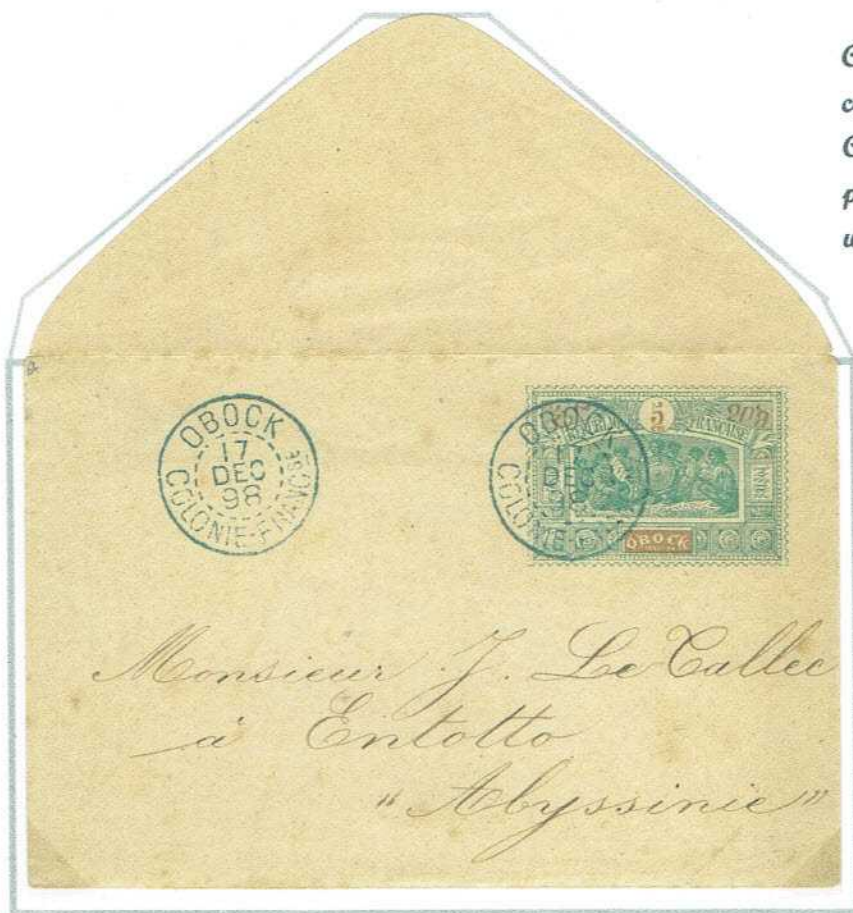 OBOCK
17
DEC
98
COLONIE-FRANÇSE
OBOCK
17
DEC
98
5
FRANÇAISE
POSTES
OBOCK
Monsieur J. Le Callec
à Entotto
"Abyssinie"